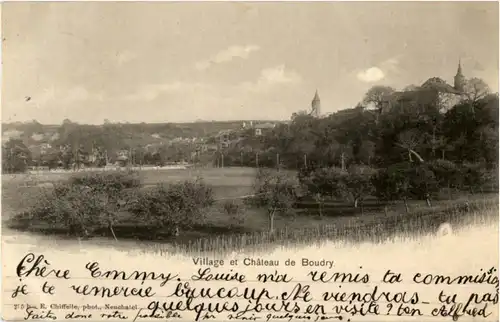 Village et Château de Boudry
Chère Emmy. Louise m'a remis ta commission
je te remercie beaucoup. Ne viendrais tu pas
E. Chiffelle, phot., Neuchatel. quelques jours en visite? ton
Faites donc votre possible pour venir quelques jours